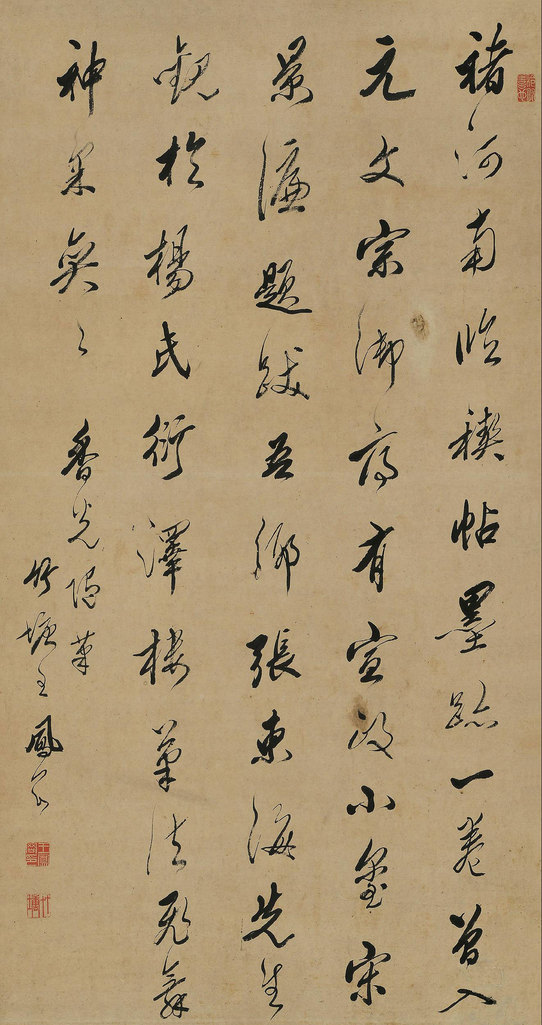 褚河南臨禊帖墨跡一卷曾入
元文宗御府有宣政小璽宋
景濂題跋吾鄉張東海先生
觀於楊氏衍澤樓筆法飛舞
神采奕〻
香光隨筆
竹塘王鳳